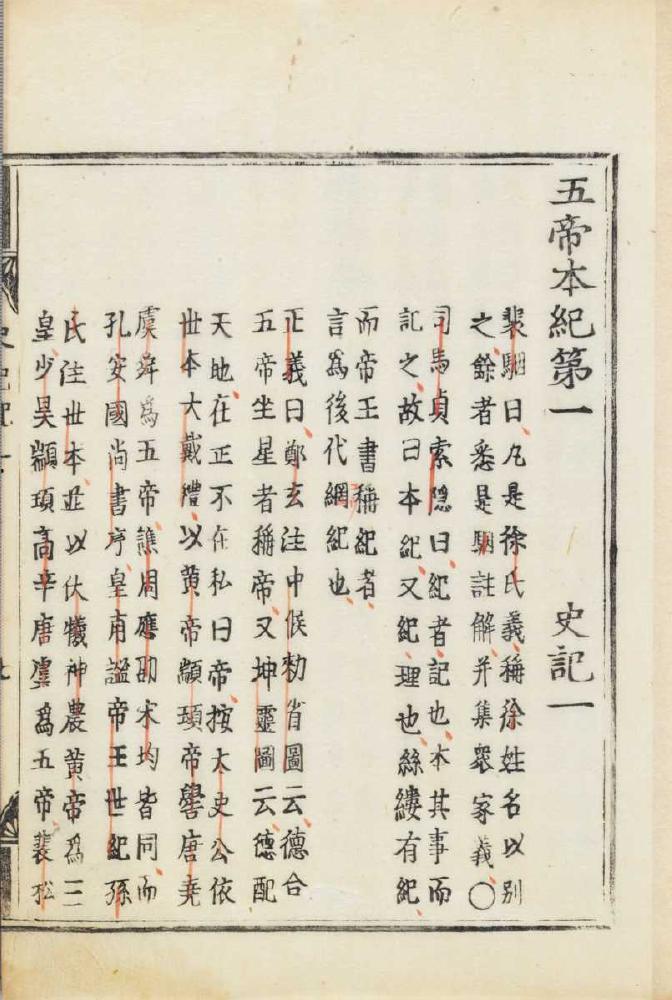 五帝本紀第一 史記一
裴駰曰凡是徐氏義稱徐姓名以別
之餘者悉是駰註解并集衆家義〇
司馬貞索隐曰紀者記也本其事而
記之故曰本紀又紀理也絲縷有紀
而帝王書稱紀者
言爲後代綱紀也
正義曰鄭玄注中候勑省圖云德合
五帝坐星者稱帝又坤靈圖云德配
天地在正不在私曰帝按太史公依
世本大戴禮以黄帝顓頊帝嚳唐堯
虞舜爲五帝譙周應劭宋均皆同而
孔安國尚書序皇甫謐帝王世紀孫
氏注世本並以伏犧神農黄帝爲三
皇少昊顓頊高辛唐虞爲五帝裴松